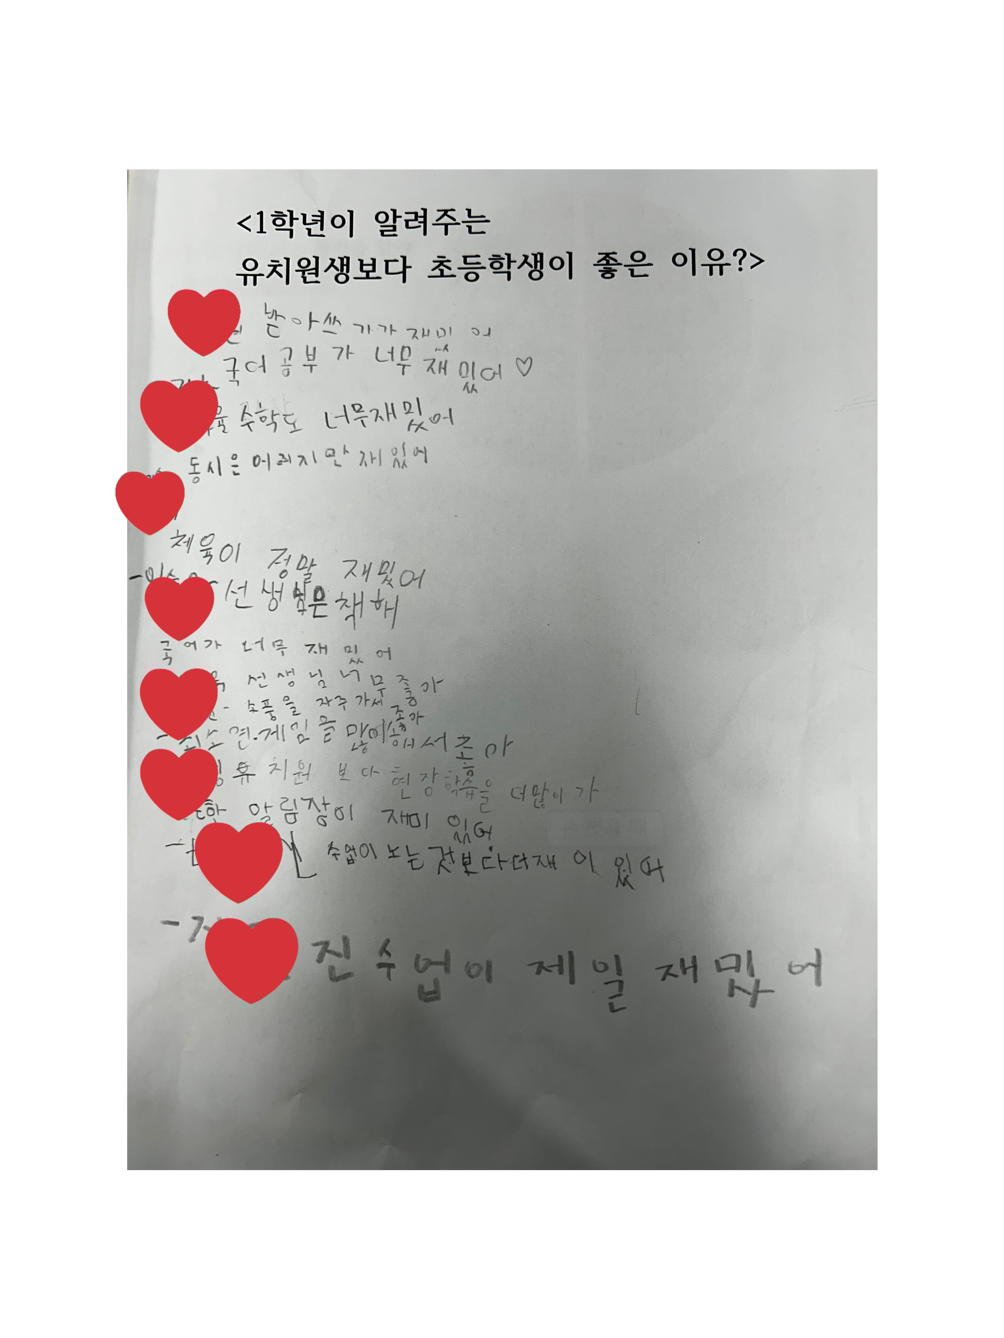 <1학년이 알려주는
유치원생보다 초등학생이 좋은 이유?>
받아쓰기가 재미 어
국어 공부가 너무 재밌어 ♡
율 수학도 너무재밌어
동시은 어려지만 재있어
체육이 정말 재밌어
선생님은 착해
국어가 너무 재밌어
선생님 너무 좋아
소풍을 자주 가서 좋아
게임을 많이 해서 좋아
유치원 보다 현장학습을 더많이 가
알림장이 재미 있어
수업이 노는것보다더재 이 있어
진 수업이 제일 재밌어